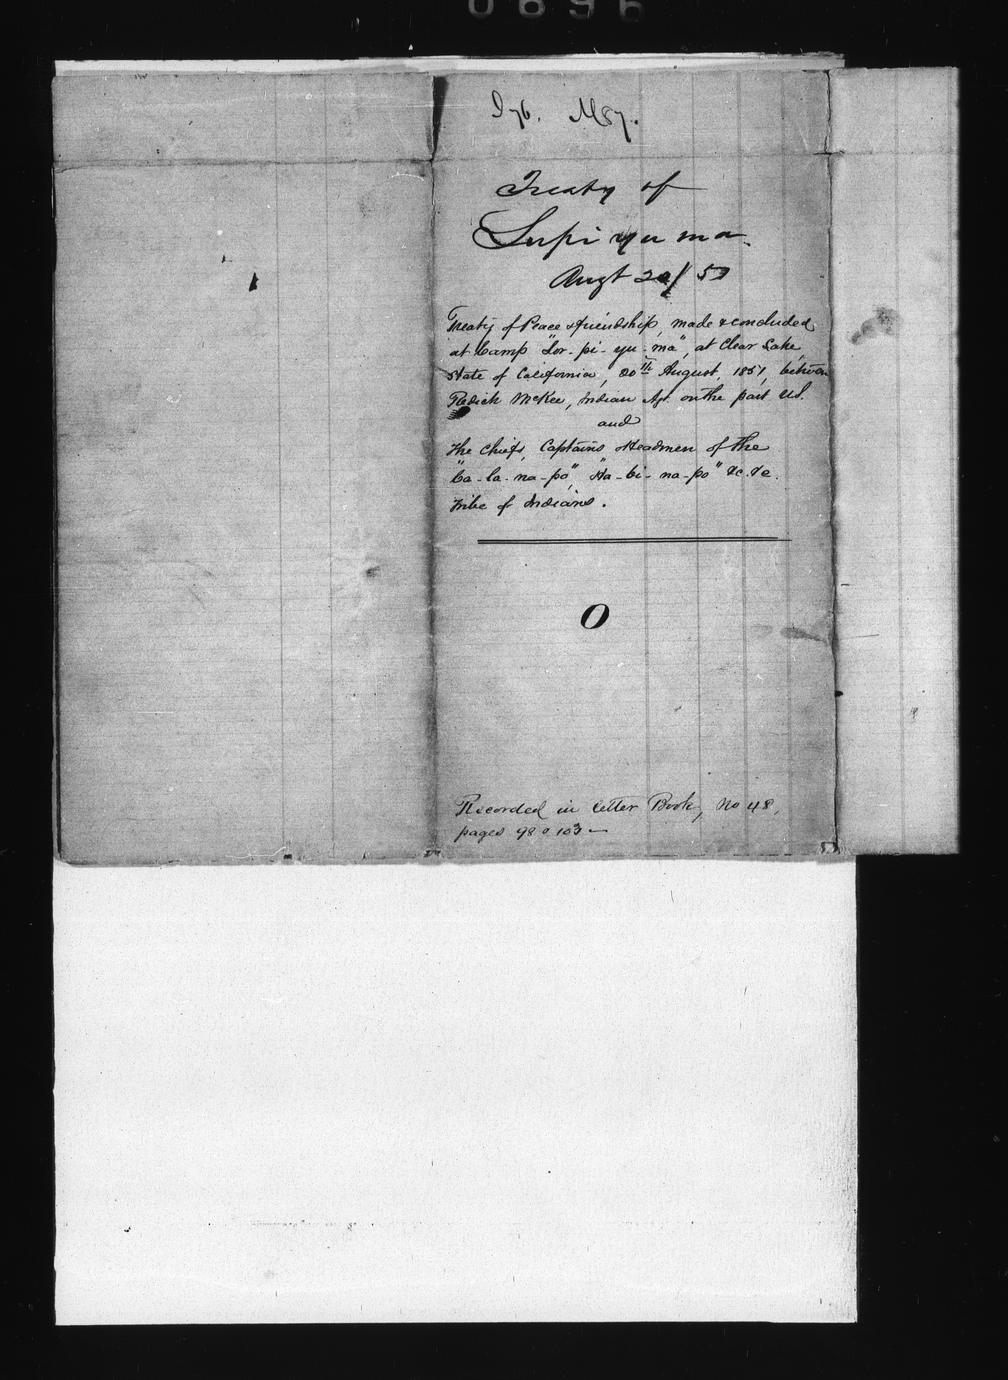 0696
I 76. M57.
Treaty of
Lupi yu ma
Augt 20/51
Treaty of Peace & friendship, made & concluded
at Camp "Lor-pi-yu-ma", at Clear Lake,
State of California, 20th August, 1851, between
Redick McKee, Indian Agt. on the part U.S.
and
The Chiefs, Captains & Headmen of the
"Ca-la-na-po", "Ha-bi-na-po" &c. &c.
Tribe of Indians.
O
Recorded in Letter Book, No 48,
pages 98 @ 103 —